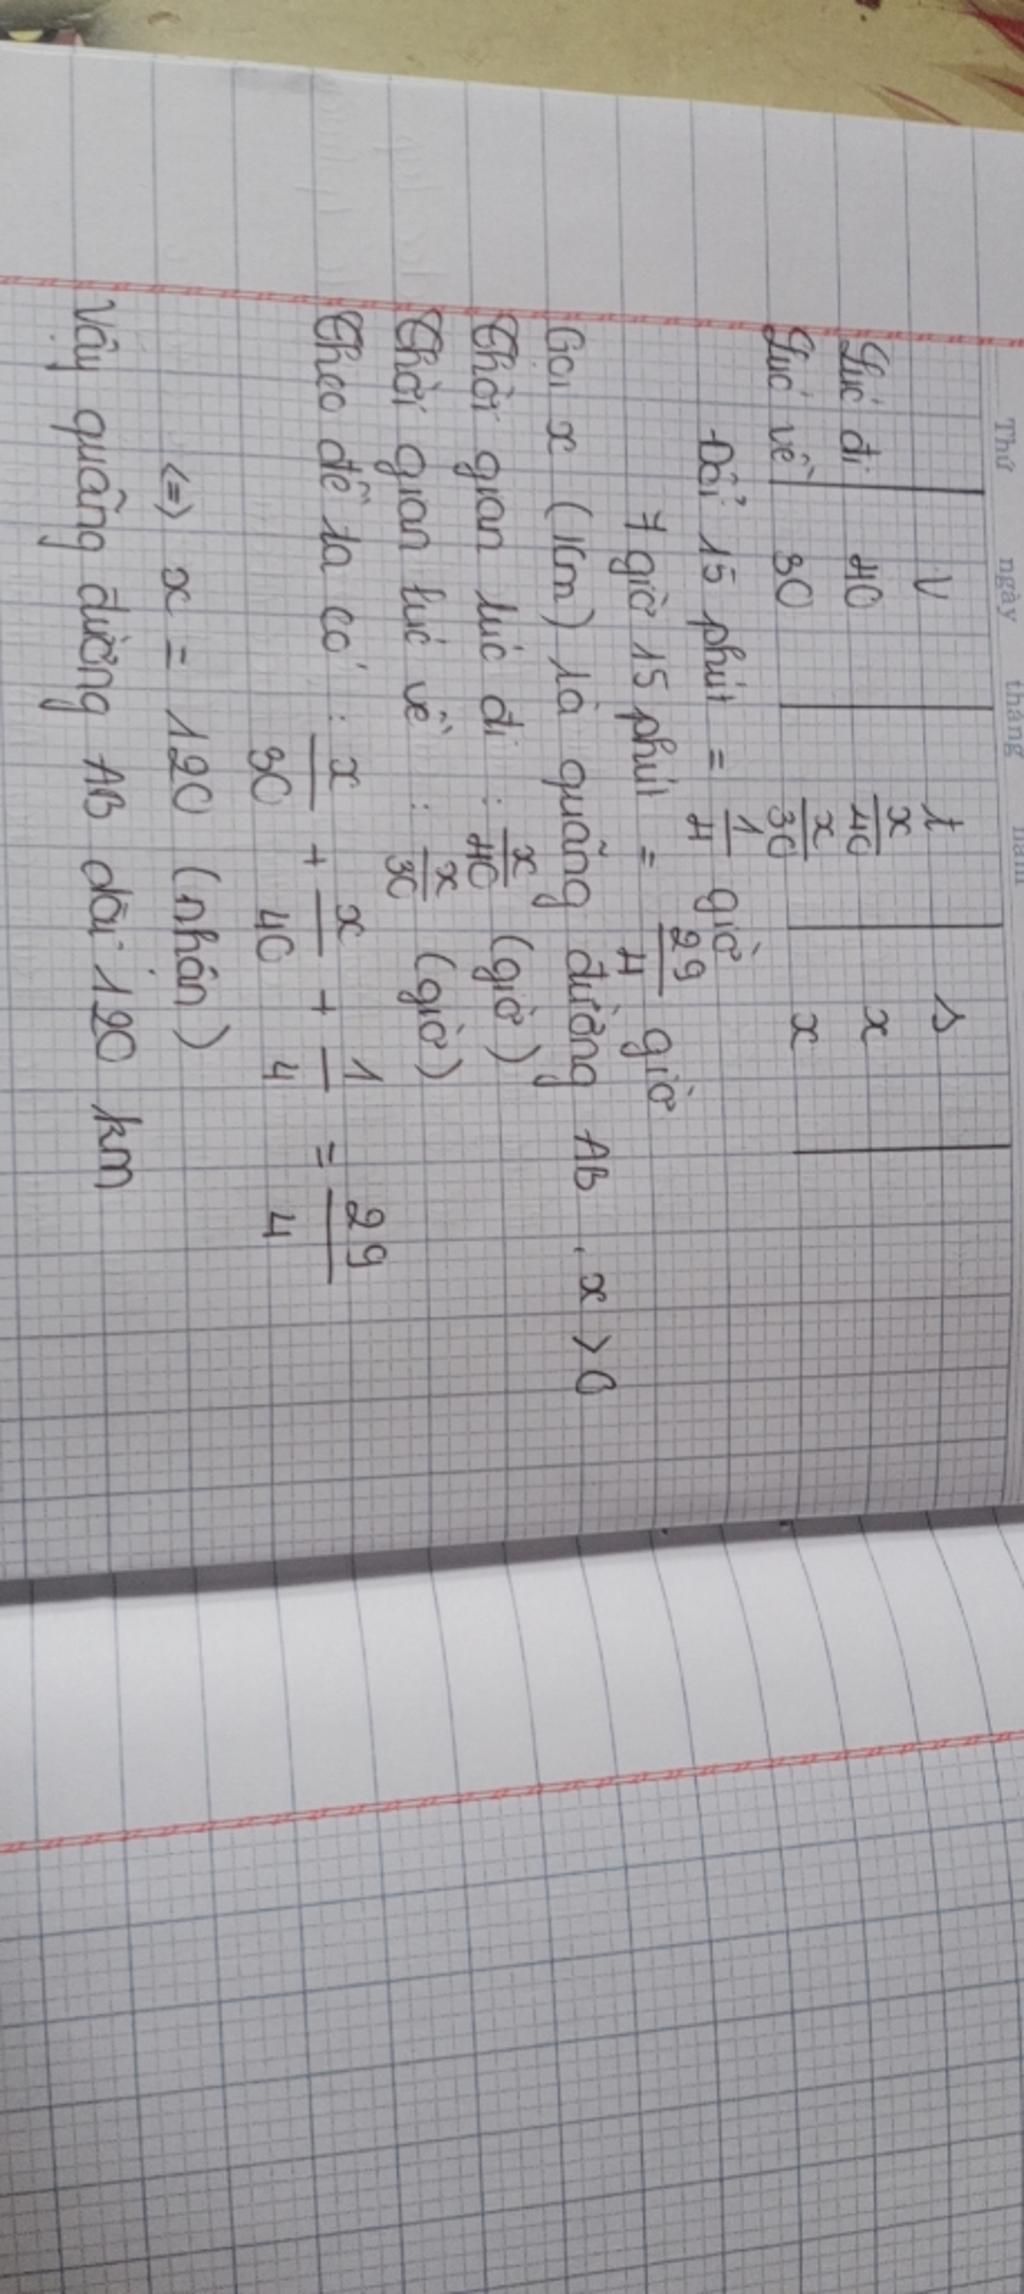 Thứ ngày tháng năm
V t s
Lúc đi 40 x/40 x
Lúc về 30 x/30 x
Đổi 15 phút = 1/4 giờ
7 giờ 15 phút = 29/4 giờ
Gọi x (km) là quãng đường AB , x > 0
Thời gian lúc đi : x/40 (giờ)
Thời gian lúc về : x/30 (giờ)
Theo đề ta có : x/30 + x/40 + 1/4 = 29/4
<=> x = 120 (nhận)
Vậy quãng đường AB dài 120 km